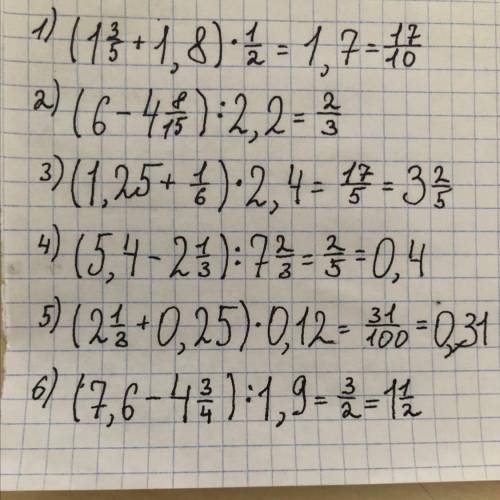 1) (1 3/5 + 1,8) · 1/2 = 1,7 = 17/10
2) (6 - 4 8/15) : 2,2 = 2/3
3) (1,25 + 1/6) · 2,4 = 17/5 = 3 2/5
4) (5,4 - 2 1/3) : 7 2/3 = 2/5 = 0,4
5) (2 1/3 + 0,25) · 0,12 = 31/100 = 0,31
6) (7,6 - 4 3/4) : 1,9 = 3/2 = 1 1/2